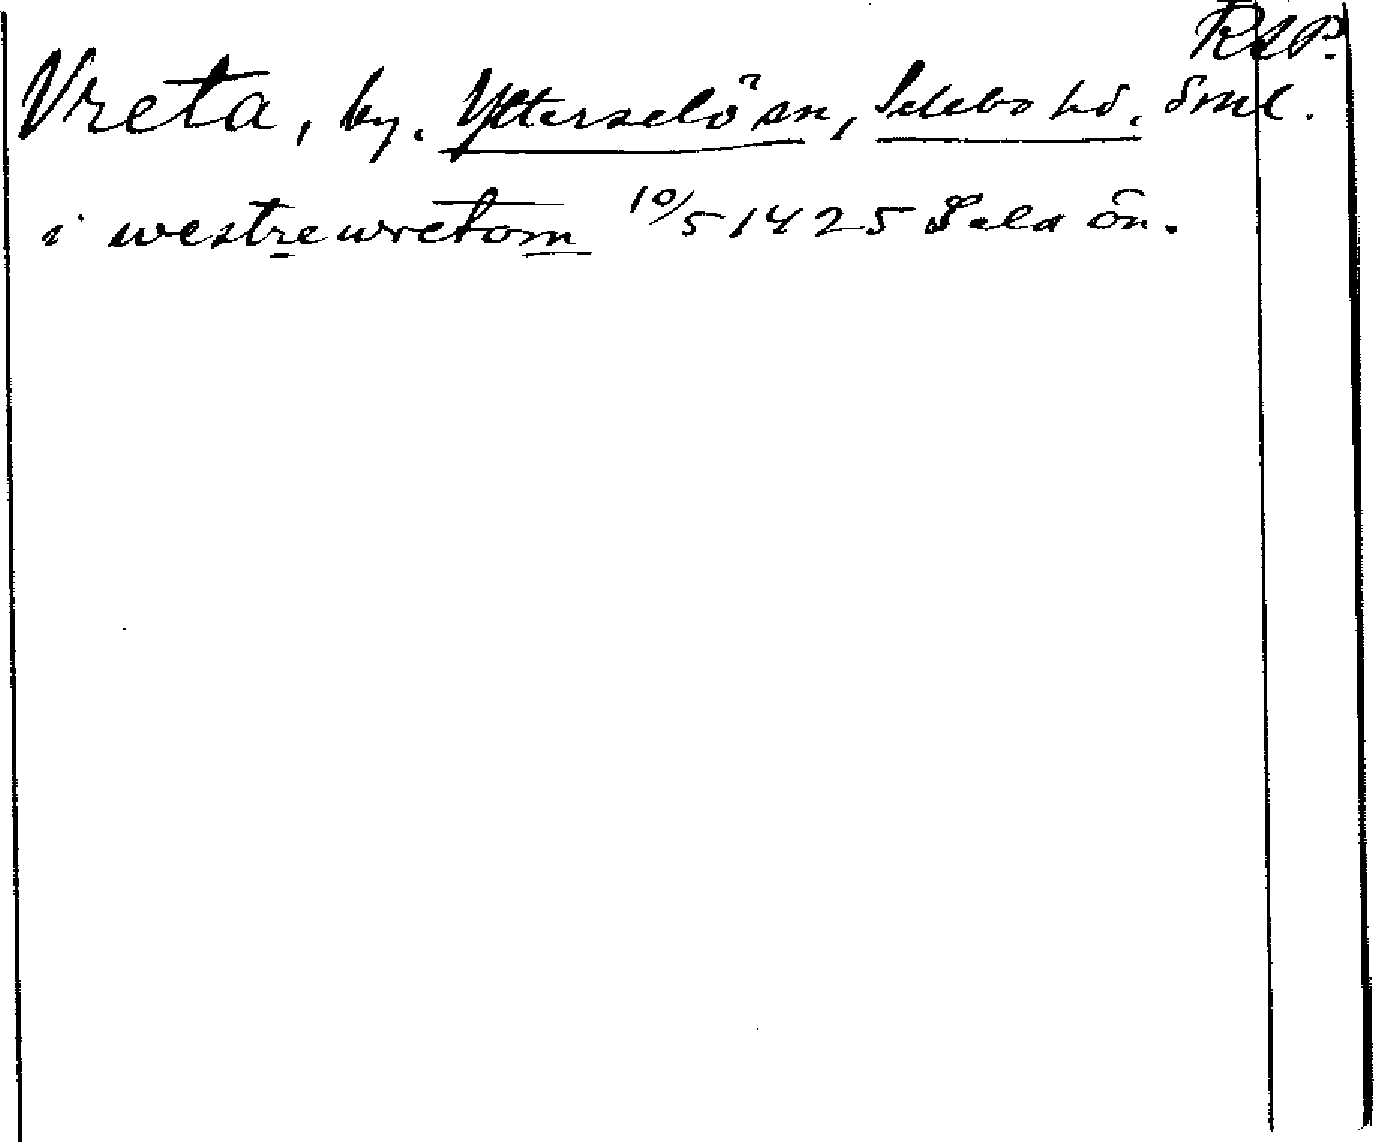 RAP.
Vreta, by. Ytterselö sn, Selebo hd. Sml.
i westrewretom 10/5 1425 Sela ön.